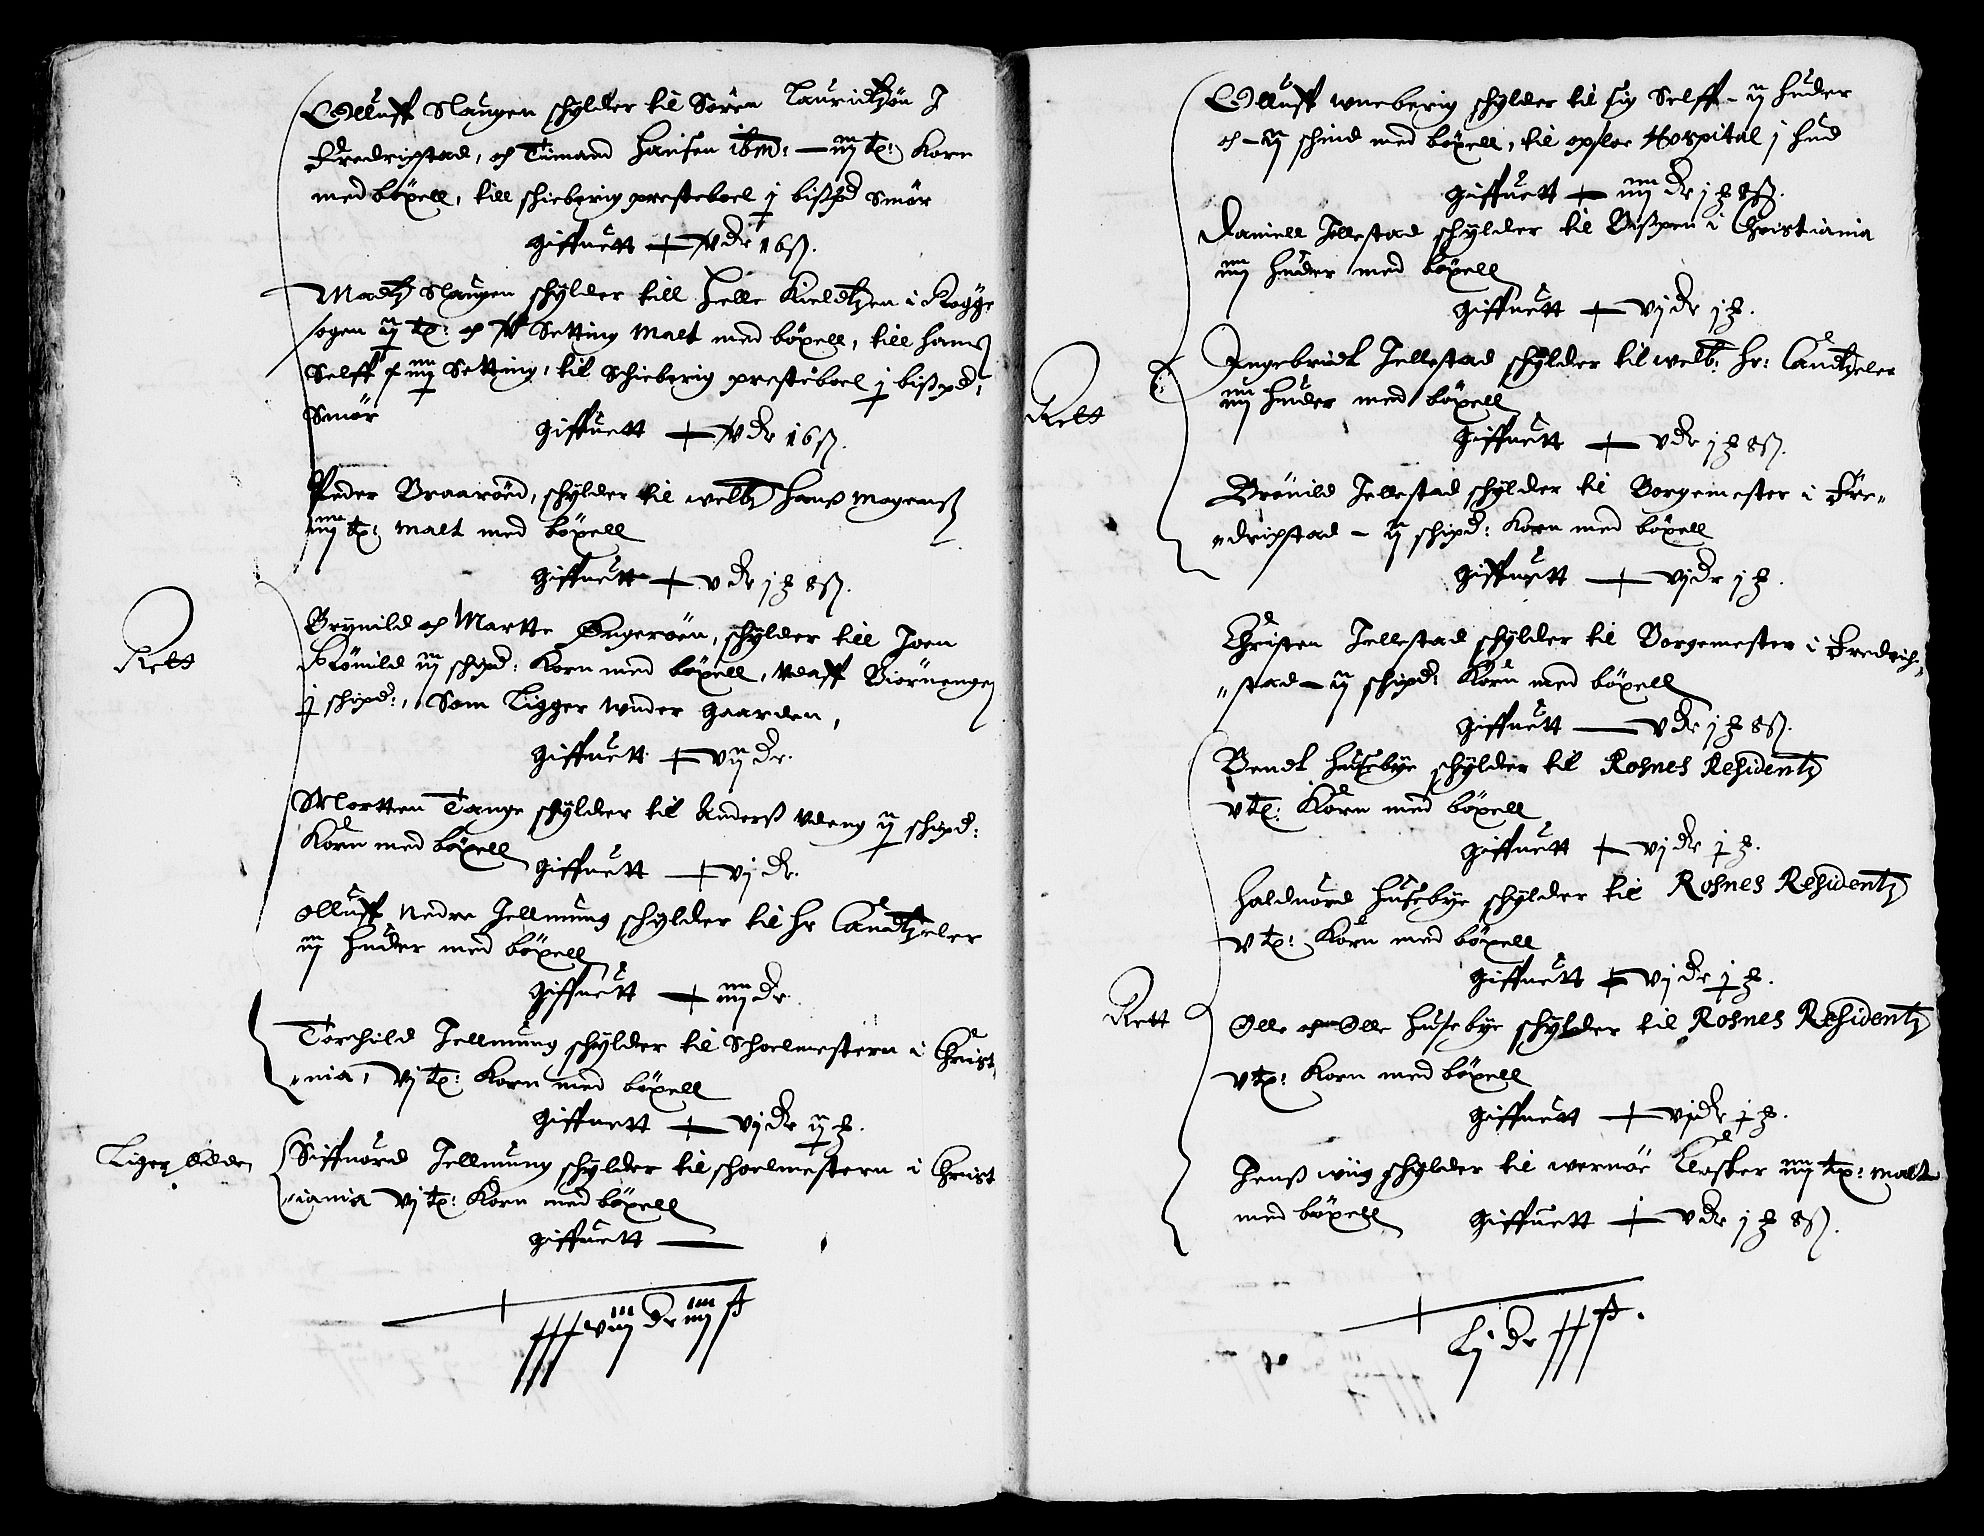 Olluff Slaugen schylder til Sören Lauridtzön J
Fredrichstad, och Tümand Hansen ibm: — iij tp: Korn
med böxell, till schieberig presteboel j bißpd Smör
giffuett — v dr 16 ß.
Madtz Slaugen schylder till Helle Kieldtzen i Rögge
sogen ij tp: och Setting Malt med böxell, till hans
Selff iiij Setting, til Schieberig presteboel j bißpd:
Smör
giffuett — v dr 16 ß.
Peder Braaröed, schylder til welb: Hanß Mogenß:
iiij tp: Malt med böxell
giffuett — v dr j ƶ 8 ß.
Rett
Brynild och Martte Engeröen, schylder till Joen
iij schpd: Korn med böxell, Vdaff Biörnengen
j schipd:, Som Ligger wnder gaarden,
giffuett — vij dr.
Mortten Tange schylder til Anderß Vdeng ij schipd:
Korn med böxell
giffuett — vj dr.
Olluff Nedre Jellmung schylder til Hr Candtzeler
iij huder med böxell
giffuett — iiij dr.
Torchild Jellmung schylder til Schoelmestern i Christ,
„nia, vj tp: Korn med böxell
giffuett — vij dr ij ƶ.
Liger Öde
Siffuörd Jellmung schylder til schoelmestern i Christ
„iania vj tp: Korn med böxell
giffuett —
xxxviij dr iiij ß
Olluff wneberig schylder til sig Selff - ij huder
och - ij schind med böxell, til opsloe Hospital j hud
giffuett — iiij dr j ƶ 8 ß.
Daniell Jellestad schylder til Bißpen i Christiania
iiij huder med böxell
giffuett — vj dr j ƶ.
Rett
Ingebridt Jellestad schylder til welb: Hr: Candtzeler
iiij huder med böxell
giffuett — v dr j ƶ 8 ß.
Brönild Jellestad schylder til Borgemester i Fre„
„drichstad - ij schipd: Korn med böxell
giffuett — vj dr j ƶ.
Christen Jellestad schylder til Borgemester i Fredrich„
„stad - ij schipd: Korn med böxell
giffuett — v dr j ƶ 8 ß.
Bendt Husebye schylder til Rosnes Residentz
v tp: Korn med böxell
giffuett — vj dr j ƶ.
Halduord Husebye schylder til Rosnes Residentz
v tp: Korn med böxell
giffuett — vj dr j ƶ.
Rett
Olle och Olle Husebye schylder til Rosnes Residentz
v tp: Korn med böxell
giffuett — vj dr j ƶ.
Jenß wiig schylder til wernöe Closter iiij tp: malt
med böxell giffuett — v dr j ƶ 8 ß.
Lj dr xx ß.